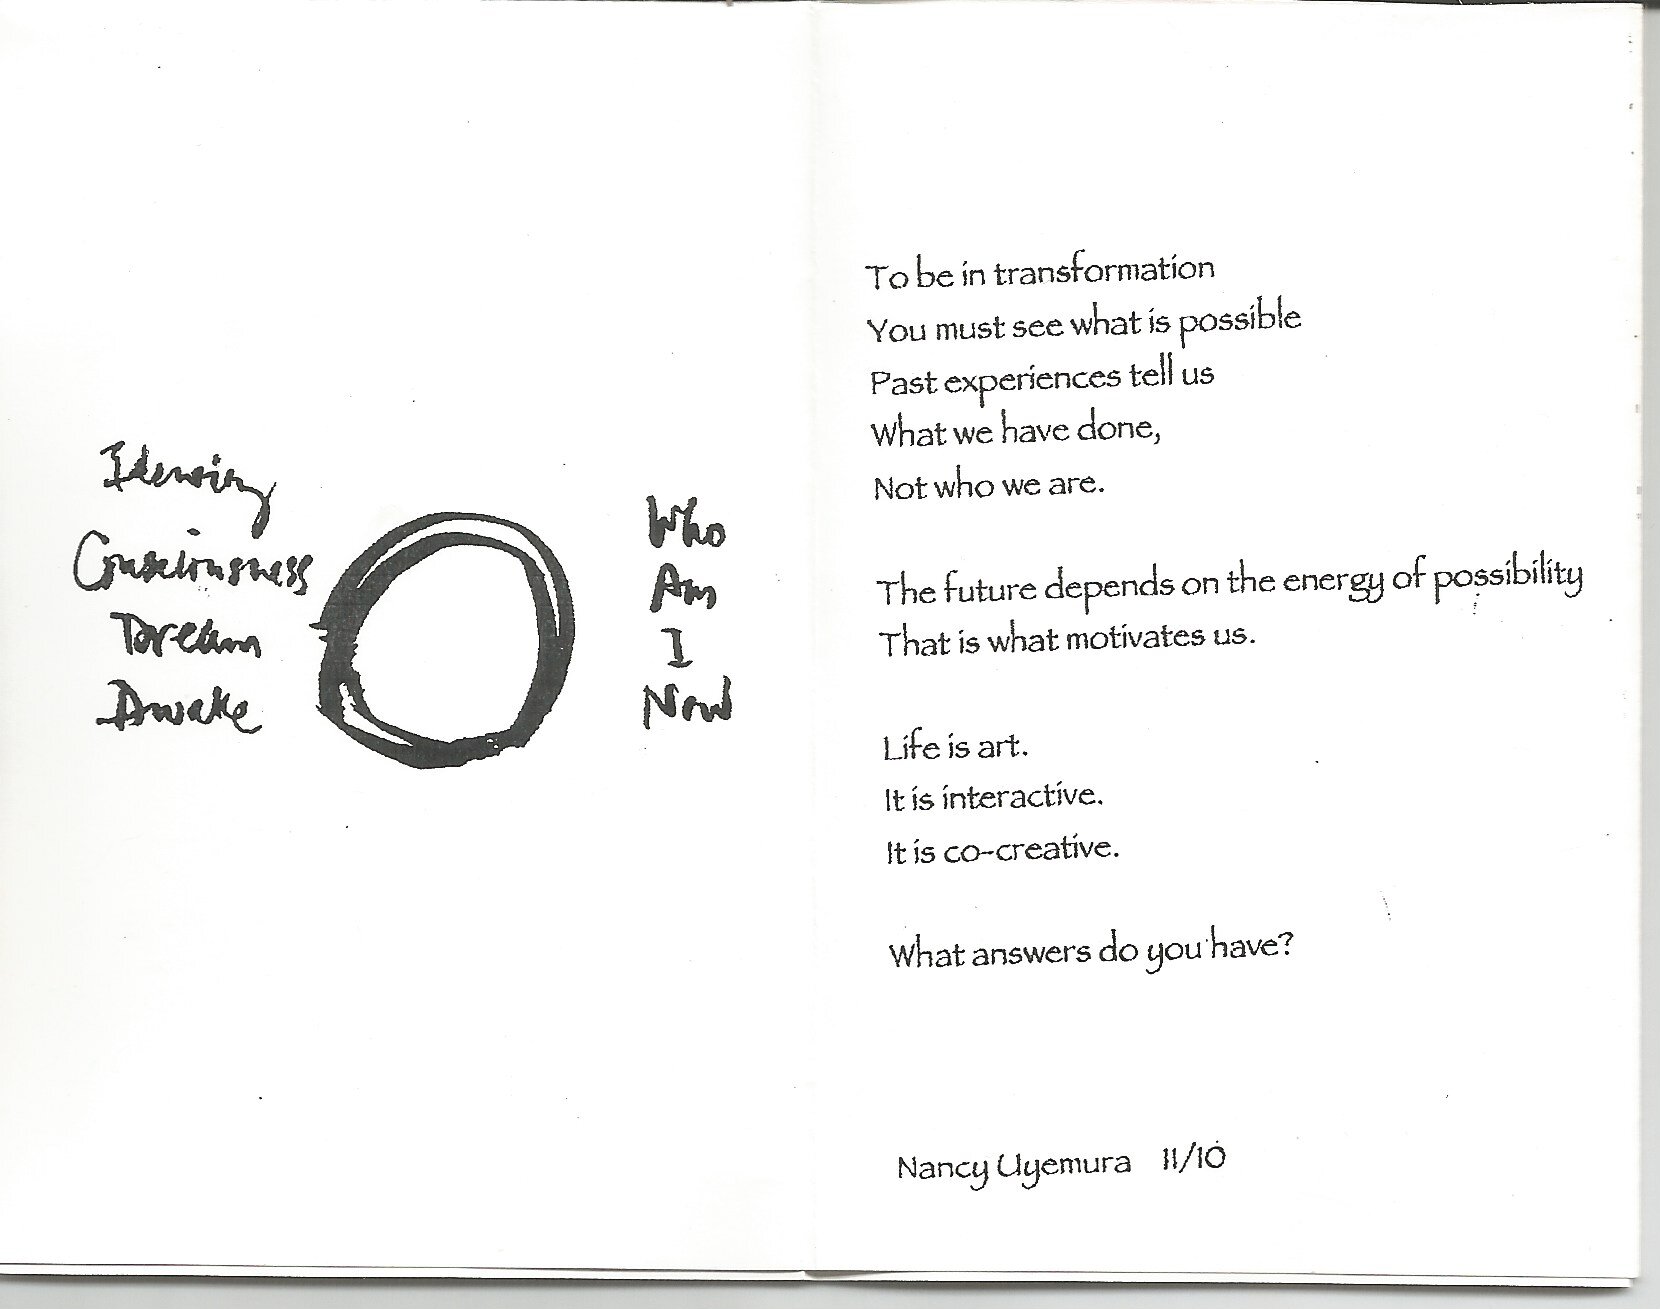 Identity
Consciousness
Dream
Awake
Who
Am
I
Now
To be in transformation
You must see what is possible
Past experiences tell us
What we have done,
Not who we are.
The future depends on the energy of possibility
That is what motivates us.
Life is art.
It is interactive.
It is co-creative.
What answers do you have?
Nancy Uyemura 11/10